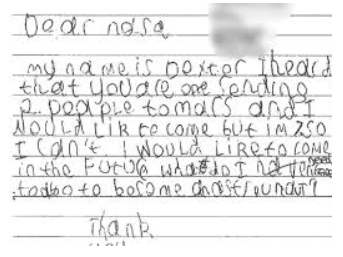 Dear nasa
my name is Dexter I heard
that you are one sending
2 people to mars and I
WOULd Lik to come but im 7 so
I can't I WOULd LiKe to come
in the FUtUre what do I need
to do to become an astrounaut?
Thank